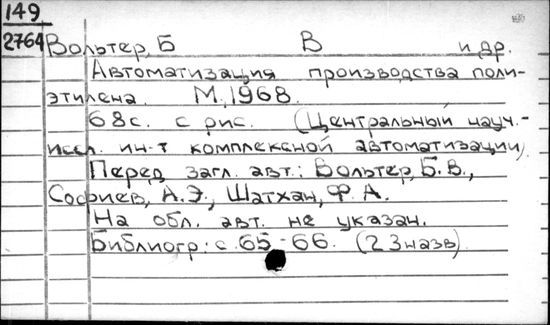 149
2764
Вольтер, Б В и др.
Автоматизация производства поли-
этилена. М., 1968.
68с. с рис. (Центральный науч.-
иссл. ин-т комплексной автоматизации)
Перед загл. авт.: Вольтер, Б. В.,
Софиев, А. Э., Шатхан, Ф. А.
На обл. авт. не указан.
Библиогр: с. 65-66. (23 назв)